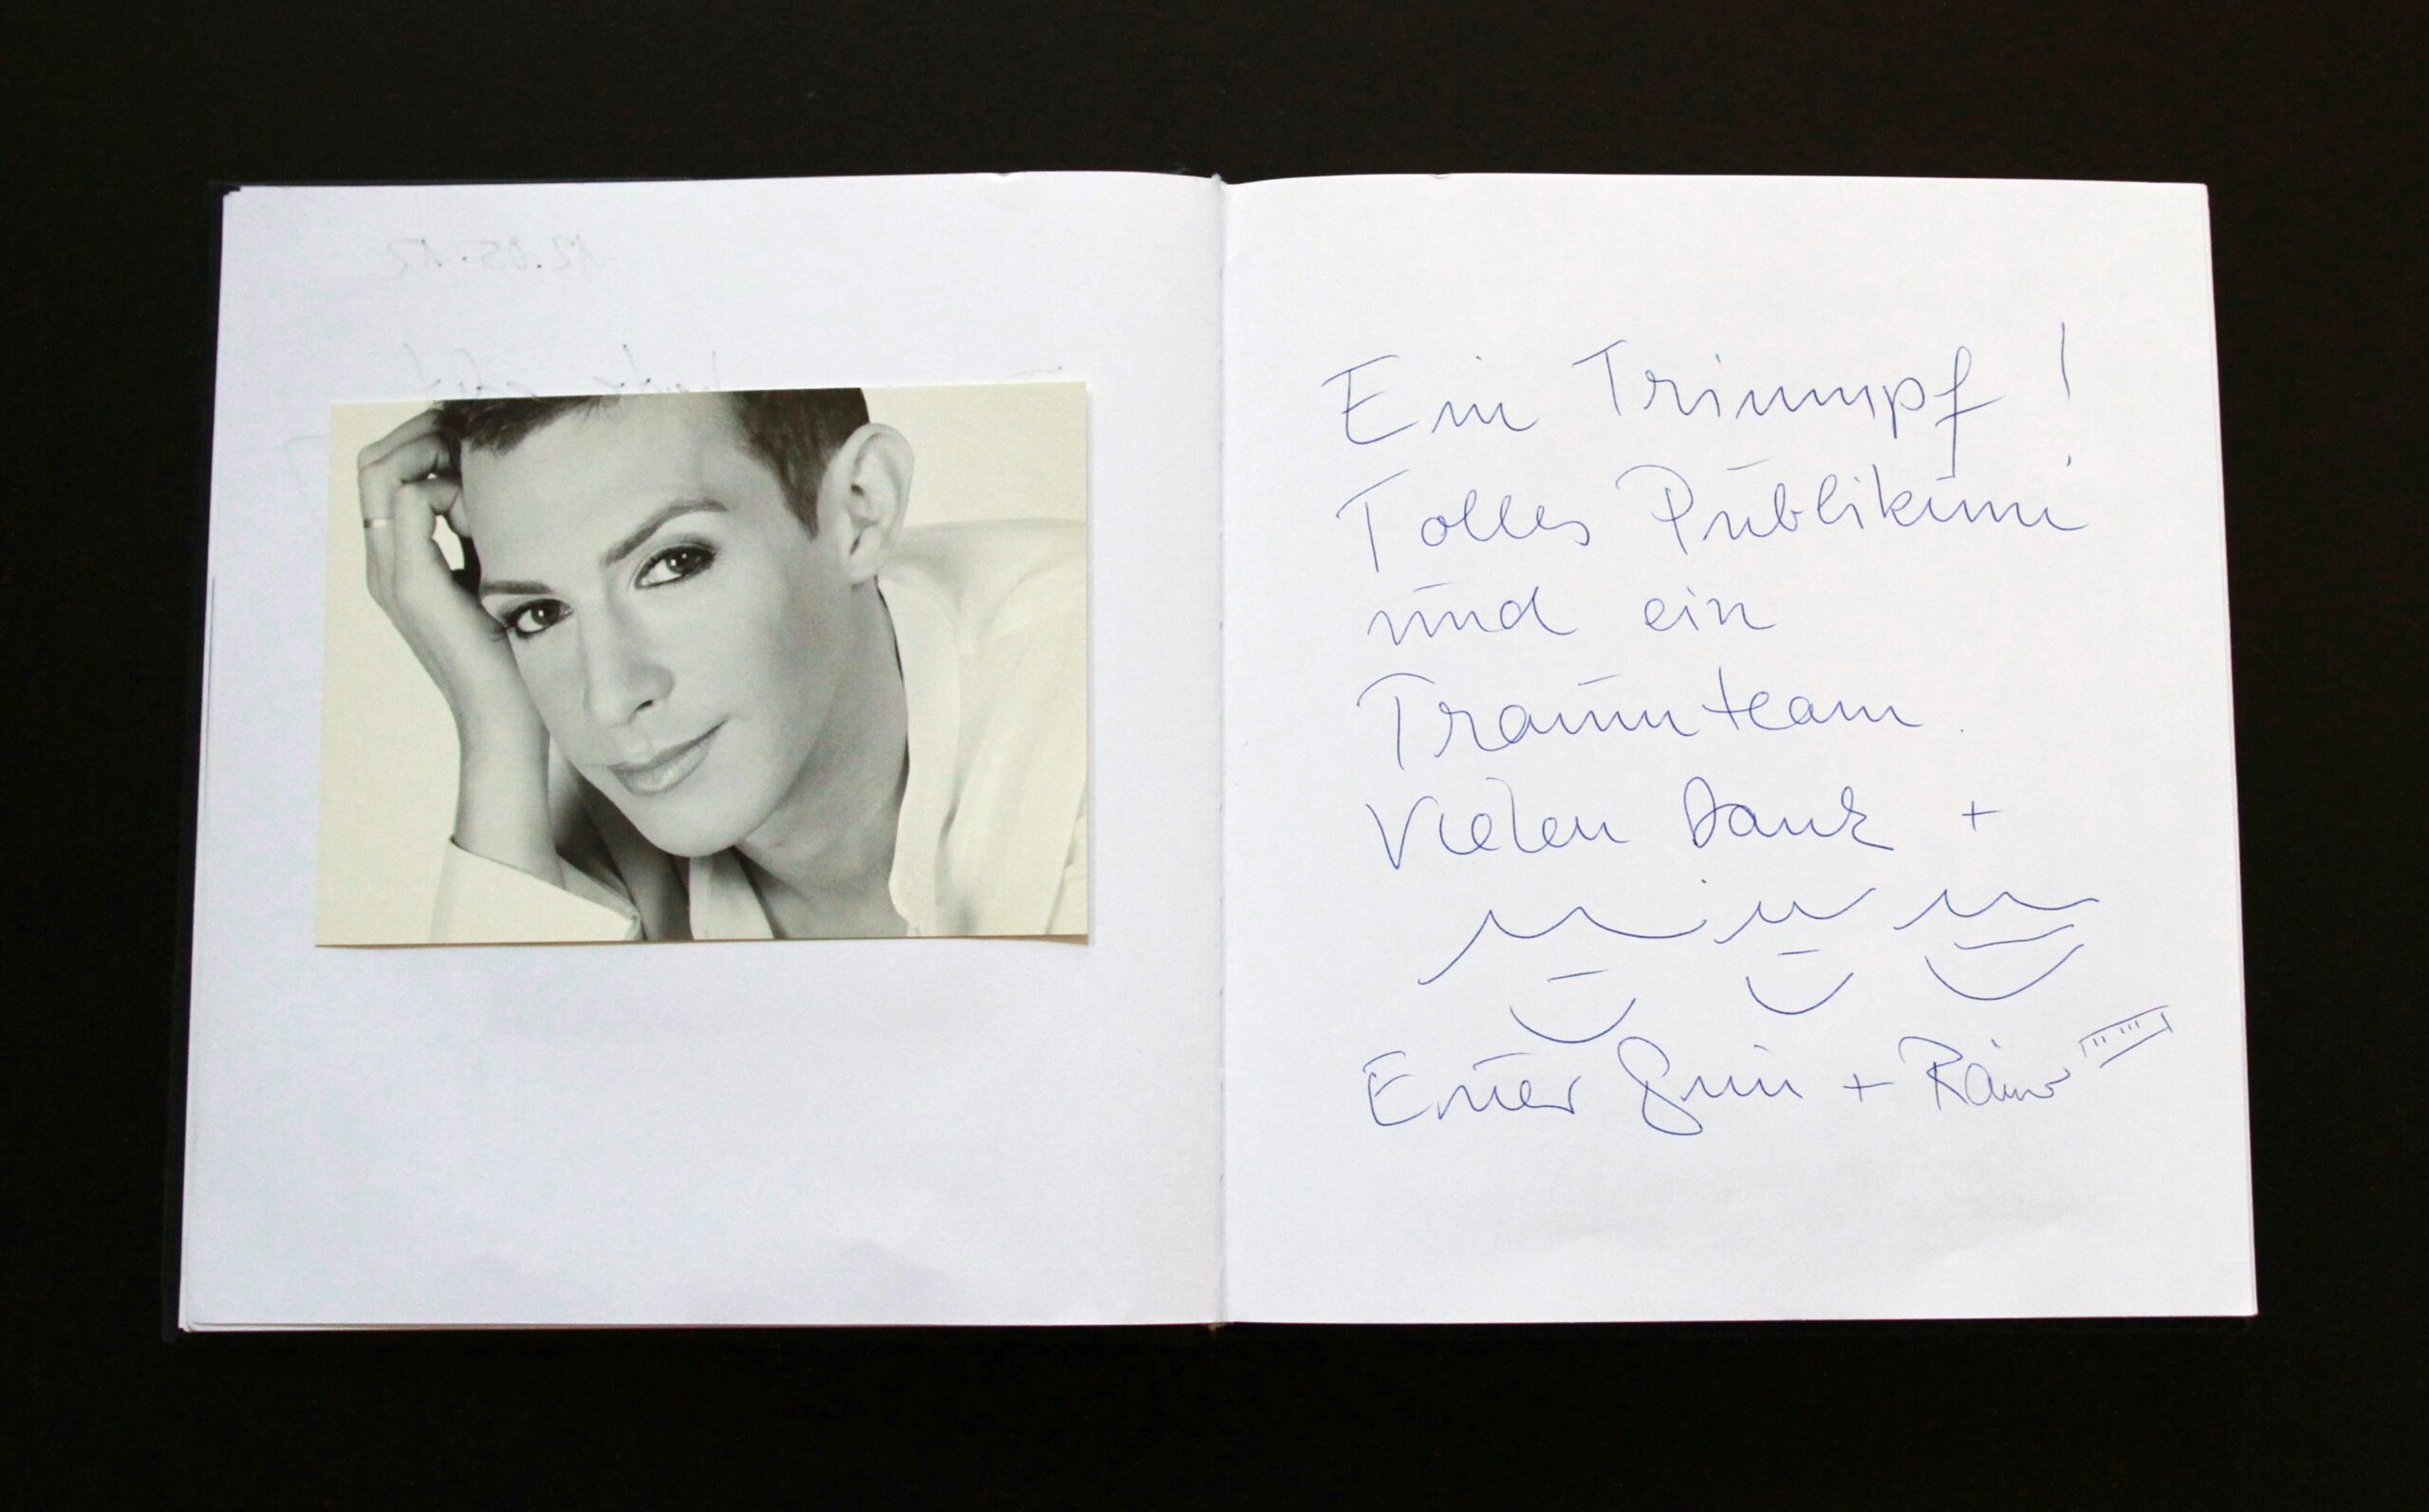 Ein Triumpf !
Tolles Publikum
und ein
Traumteam.
Vielen Dank +
Euer +